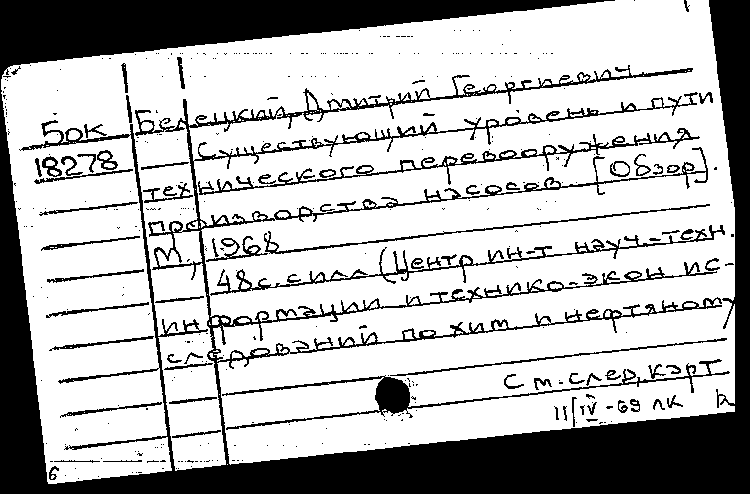 Белецкий, Дмитрий Георгиевич.
50К Существующий уровень и пути
18278 технического перевооружения
производства насосов. [Обзор].
М., 1968
48 с. с илл. (Центр. ин-т науч.-техн.
информации и технико-экон. ис-
следований по хим. и нефтяному
См. след. карт.
11/IV-69 ЛК
6